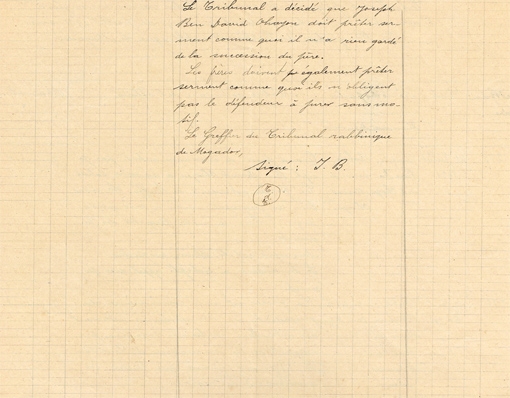 Le Tribunal a décidé que Joseph
Ben David Ohayon doit prêter ser-
ment comme quoi il n'a rien gardé
de la succession du père.
Les frères doivent également prêter
serment comme quoi ils n'obligent
pas le défendeur à jurer sans mo-
tif.
Le Greffier du Tribunal rabbinique
de Mogador,
Signé : J. B.